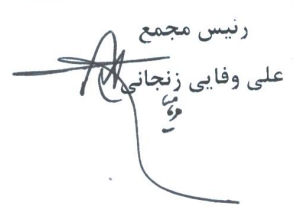 رئیس مجمع
علی وفایی زنجانی